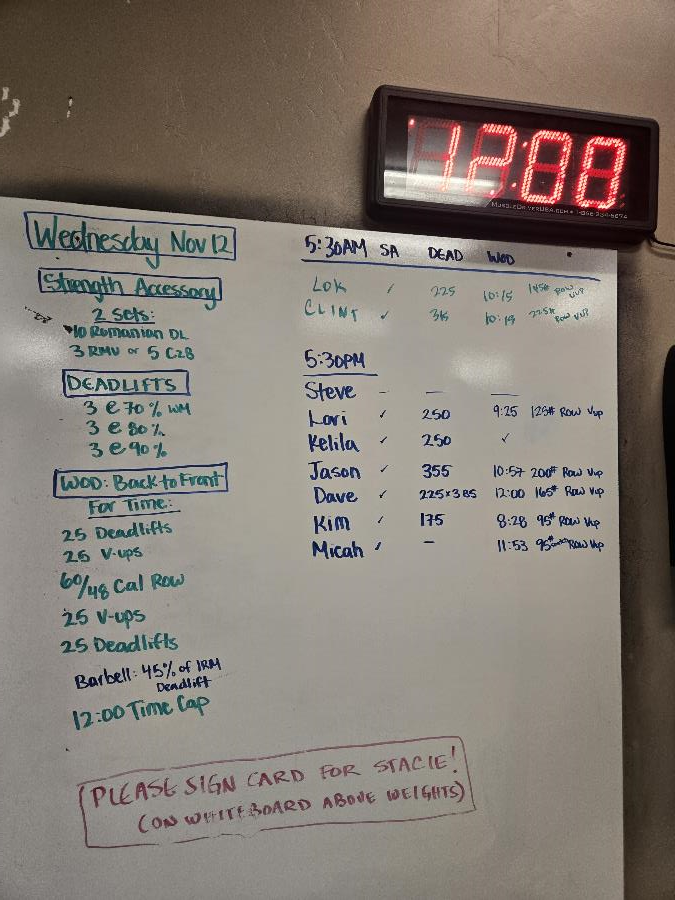 12:00
MuscleDriverUSA.com
Wednesday Nov 12
Strength Accessory
2 sets:
10 Romanian DL
3 RMU or 5 C2B
DEADLIFTS
3 @ 70% WM
3 @ 80%
3 @ 90%
WOD: Back to Front
For Time:
25 Deadlifts
25 V-ups
60/48 Cal Row
25 V-ups
25 Deadlifts
Barbell: 45% of 1RM
Deadlift
12:00 Time Cap
5:30AM SA DEAD WOD
LOK ✓ 225 10:15 145# ROW VUP
CLINT ✓ 315 10:19 225# ROW VUP
5:30PM
Steve – – –
Lori ✓ 250 9:25 125# Row Vup
Kelila ✓ 250 ✓
Jason ✓ 355 10:57 200# Row Vup
Dave ✓ 225×3 BS 12:00 165# Row Vup
Kim ✓ 175 8:28 95# Row Vup
Micah ✓ – 11:53 95# Row Vup
PLEASE SIGN CARD FOR STACIE!
(ON WHITEBOARD ABOVE WEIGHTS)